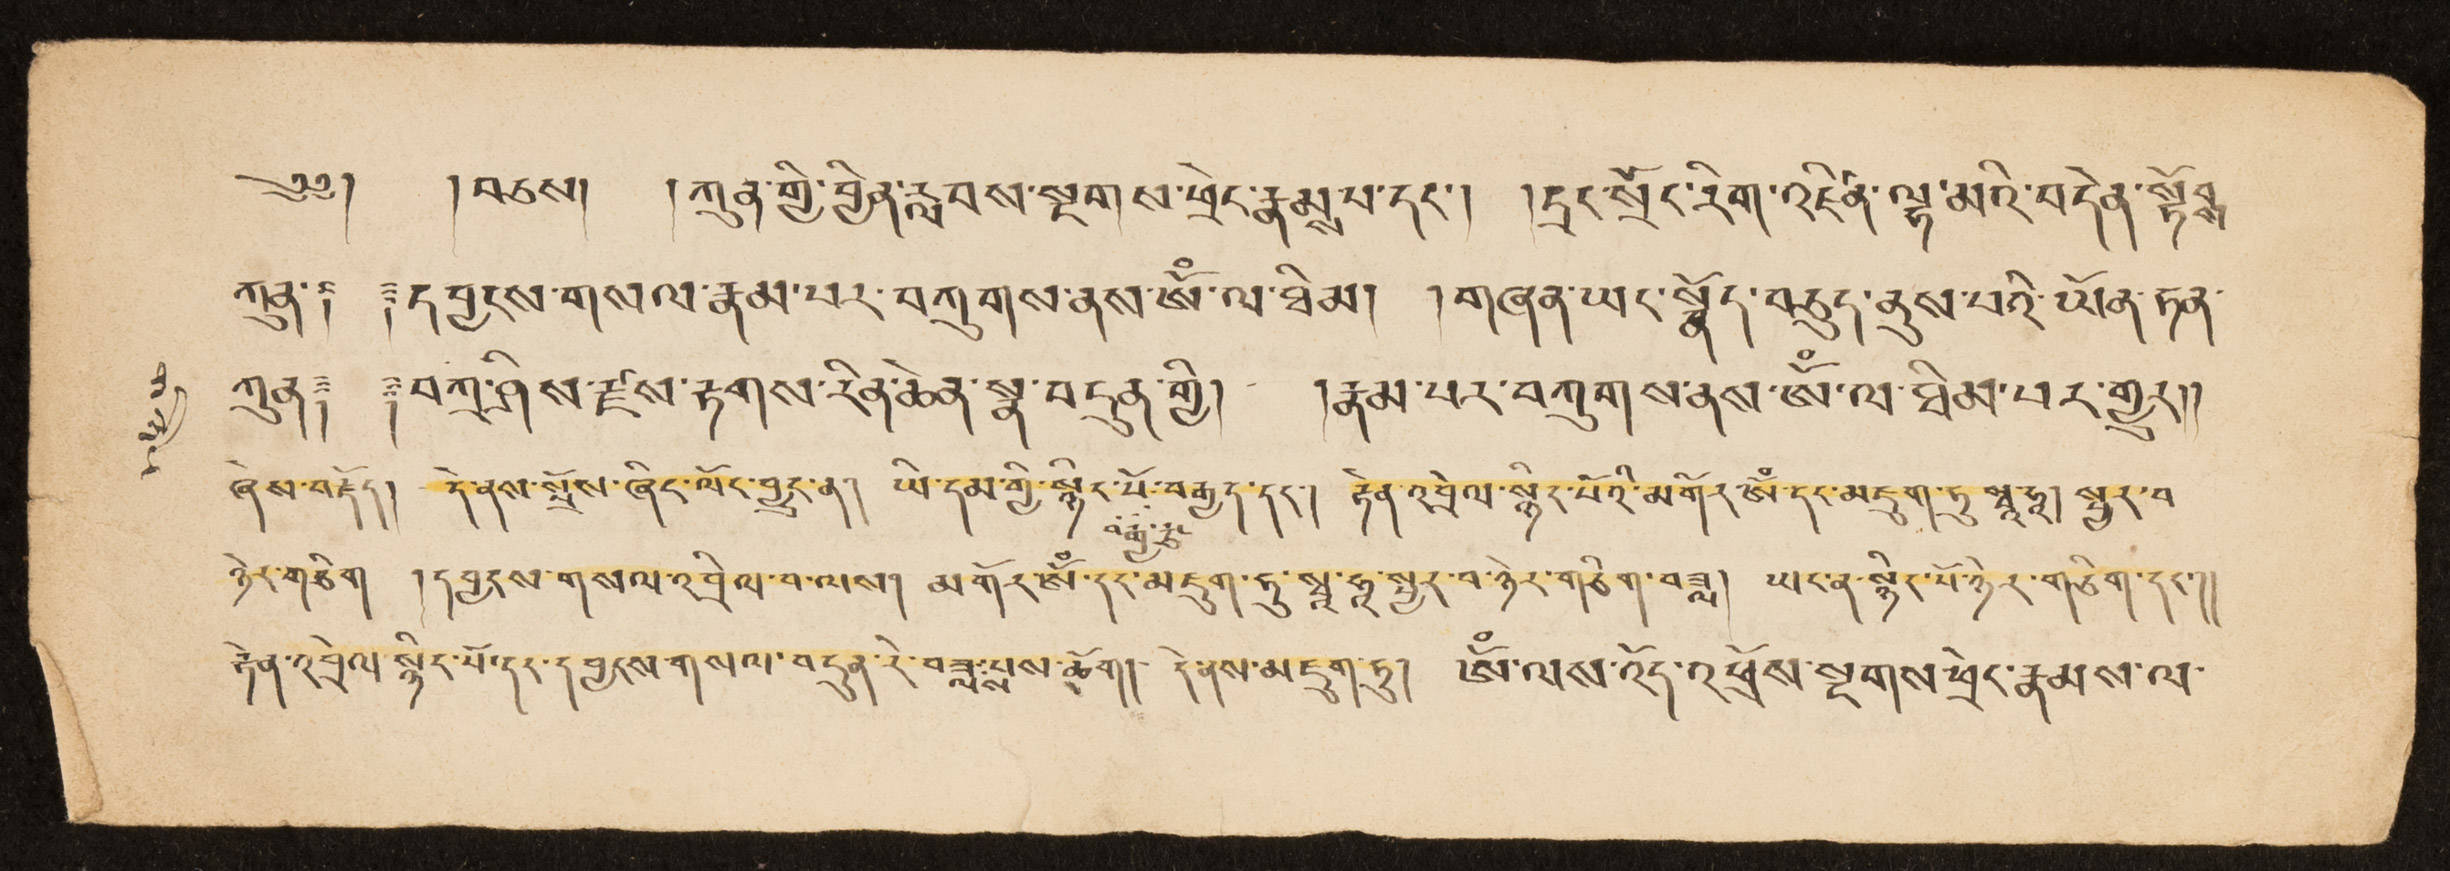 ༄༅། །བཅས། །ཀུན་གྱི་བྱིན་རླབས་སྔགས་ཕྲེང་རྣམ་པ་དང་། །དྲང་སྲོང་རིག་འཛིན་ལྷ་མའི་བདེན་སྟོབས
ཀུན་༔ ༔དབྱངས་གསལ་རྣམ་པར་བཀུགས་ནས་ཨོཾ་ལ་ཐིམ། །གཞན་ཡང་སྣོད་བཅུད་ནུས་པའི་ཡོན་ཏན་
ཀུན༔ ༔བཀྲ་ཤིས་རྫས་རྟགས་རིན་ཆེན་སྣ་བདུན་གྱི། །རྣམ་པར་བཀུགས་ནས་ཨོཾ་ལ་ཐིམ་པར་གྱུར།།
ཞེས་བརྗོད། དེ་ནས་སྤྲོས་ཞིང་ལོང་བྱུང་ན། ཡི་དམ་གྱི་སྙིང་པོ་བརྒྱད་དང་། རྟེན་འབྲེལ་སྙིང་པོའི་མགོར་ཨོཾ་དང་མཇུག་ཏུ་སྭཱ་ཧཱ། སྦྱར་བ
ཉེར་གཅིག །དབྱངས་གསལ་འབྲིལ་བ་ལས། མགོར་ཨོཾ་དང་མཇུག་ཏུ་སྭཱ་ཧཱ་སྦྱར་བ་ཉེར་གཅིག་བཟླ། ཡང་ན་སྙིང་པོ་ཉེར་གཅིག་དང་།།
རྟེན་འབྲེལ་སྙིང་པོ་དང་དབྱངས་གསལ་བདུན་རེ་བཟླ་བྱས་ཆོག། དེ་ནས་མཇུག་ཏུ། ཨོཾ་ལས་འོད་འཕྲོས་སྔགས་ཕྲེང་རྣམས་ལ་